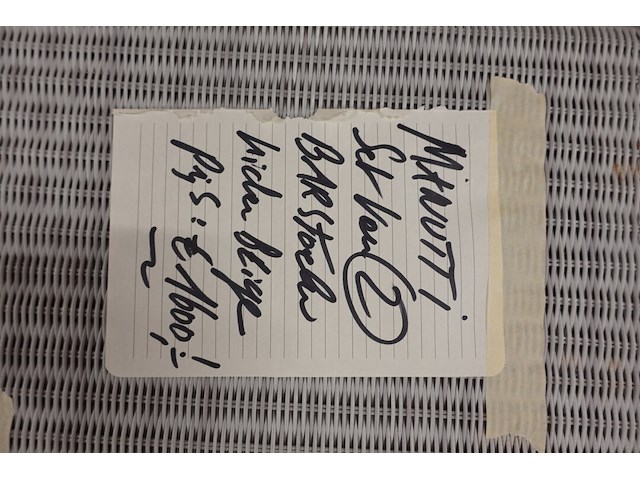 MANUTTI
Set van 2
BARstoelen
kleur Beige
Prijs: € 1600,-!